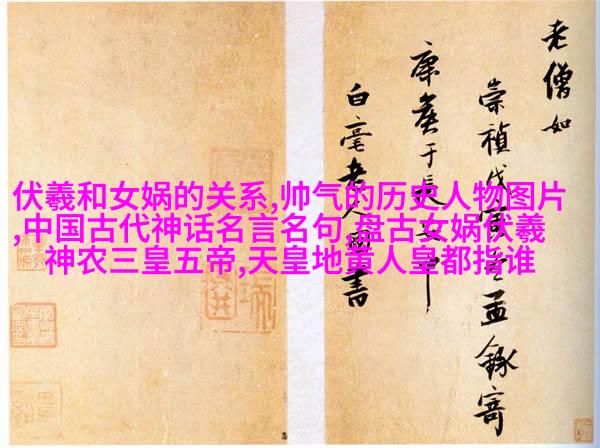 伏羲和女娲的关系,帅气的历史人物图片
,中国古代神话名言名句,盘古女娲伏羲
神农三皇五帝,天皇地黄人皇都指谁
老僧如
崇祯戊寅孟寄
康侯于长安
白毫老人书